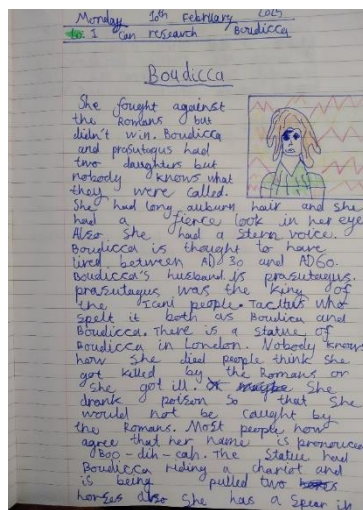 Monday 10th February 2025
to: I can research Boudicca
Boudicca
She fought against
the Romans but
didn't win. Boudicca
and prasutagus had
two daughters but
nobody knows what
they were called.
She had long auburn hair and she
had a fierce look in her eye
Also she had a stern voice.
Boudicca is thought to have
lived between AD 30 and AD60.
Boudicca's husband is prasutagus.
prasutagus was the king of
the Icani people. Tacitus who
spelt it both as Boudica and
Boudicca. There is a statue of
Boudicca in London. Nobody knows
how she died people think she
got killed by the Romans or
she got ill. or maybe she
drank poison so that she
would not be caught by
the Romans. Most people now
agree that her name is pronounced
Boo-dih-cah. The statue had
Boudicca riding a chariot and
is being pulled two
horses also she has a spear in